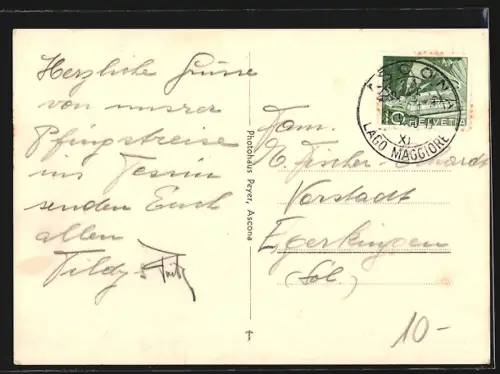 Herzliche Grüsse
von unsrer
Pfingstreise
ins Tessin
senden Euch
allen
Tildy & Fritz
Photohaus Peyer, Ascona
ASCONA
LAGO MAGGIORE
XI
10 HELVETIA
Fam.
Fischer-
Vorstadt
Egerkingen
(Sol.)
10-